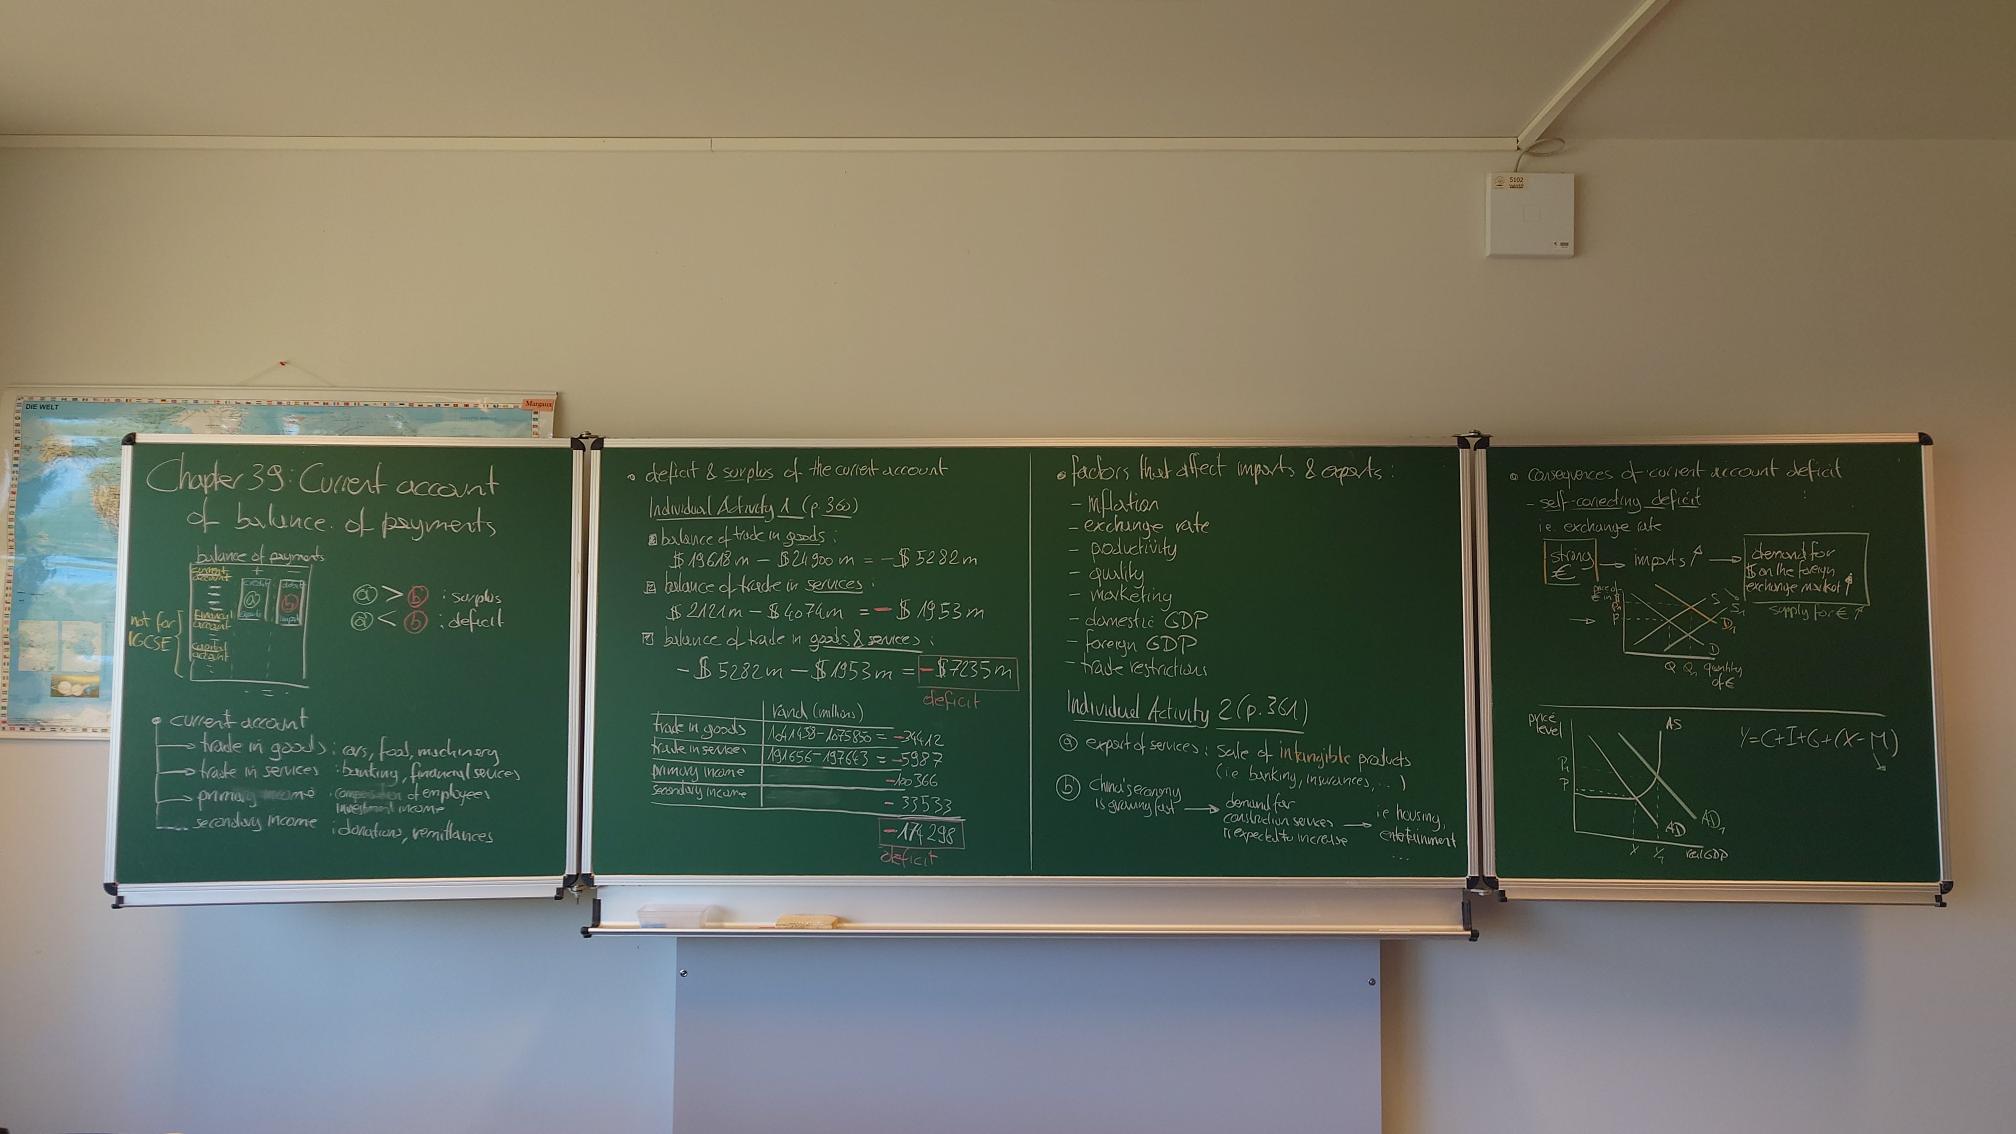 DIE WELT
Margaux
5102
Chapter 39: Current account
of balance of payments
balance of payments
current
account
+ −
credit
debit
a
b
exports
import
financial
account
capital
account
not for
IGCSE
a > b : surplus
a < b : deficit
• current account
trade in goods : cars, food, machinery
trade in services : banking, financial sevices
primary income : compensation of employees
investment income
secondary income : donations, remittances
• deficit & surplus of the current account
Individual Activity 1 (p. 360)
balance of trade in goods :
$ 19618 m − $ 24900 m = − $ 5282 m
balance of trade in services :
$ 2121 m − $ 4074 m = − $ 1953 m
balance of trade in goods & services :
− $ 5282 m − $ 1953 m = − $ 7235 m
deficit
rand (millions)
trade in goods 1041438 − 1075850 = −34412
trade in services 191656 − 197643 = −5987
primary income −100366
secondary income − 33533
−174298
deficit
• factors that affect imports & exports :
− inflation
− exchange rate
− productivity
− quality
− marketing
− domestic GDP
− foreign GDP
− trade restrictions
Individual Activity 2 (p. 361)
a export of services : sale of intangible products
(i.e banking, insurances, ... )
b China's economy
is growing fast → demand for
construction services
is expected to increase → i.e housing,
entertainment
...
• consequences of current account deficit
− self-correcting deficit
i.e. exchange rate
strong
€ → imports ↑ → demand for
$ on the foreign
exchange market ↑
supply for € ↑
price of
€ in $
P1
P
S
S1
D1
D
Q Q1 quantity
of €
price
level
P1
P
AS
AD
AD1
Y Y1 real GDP
Y = C + I + G + (X − M)